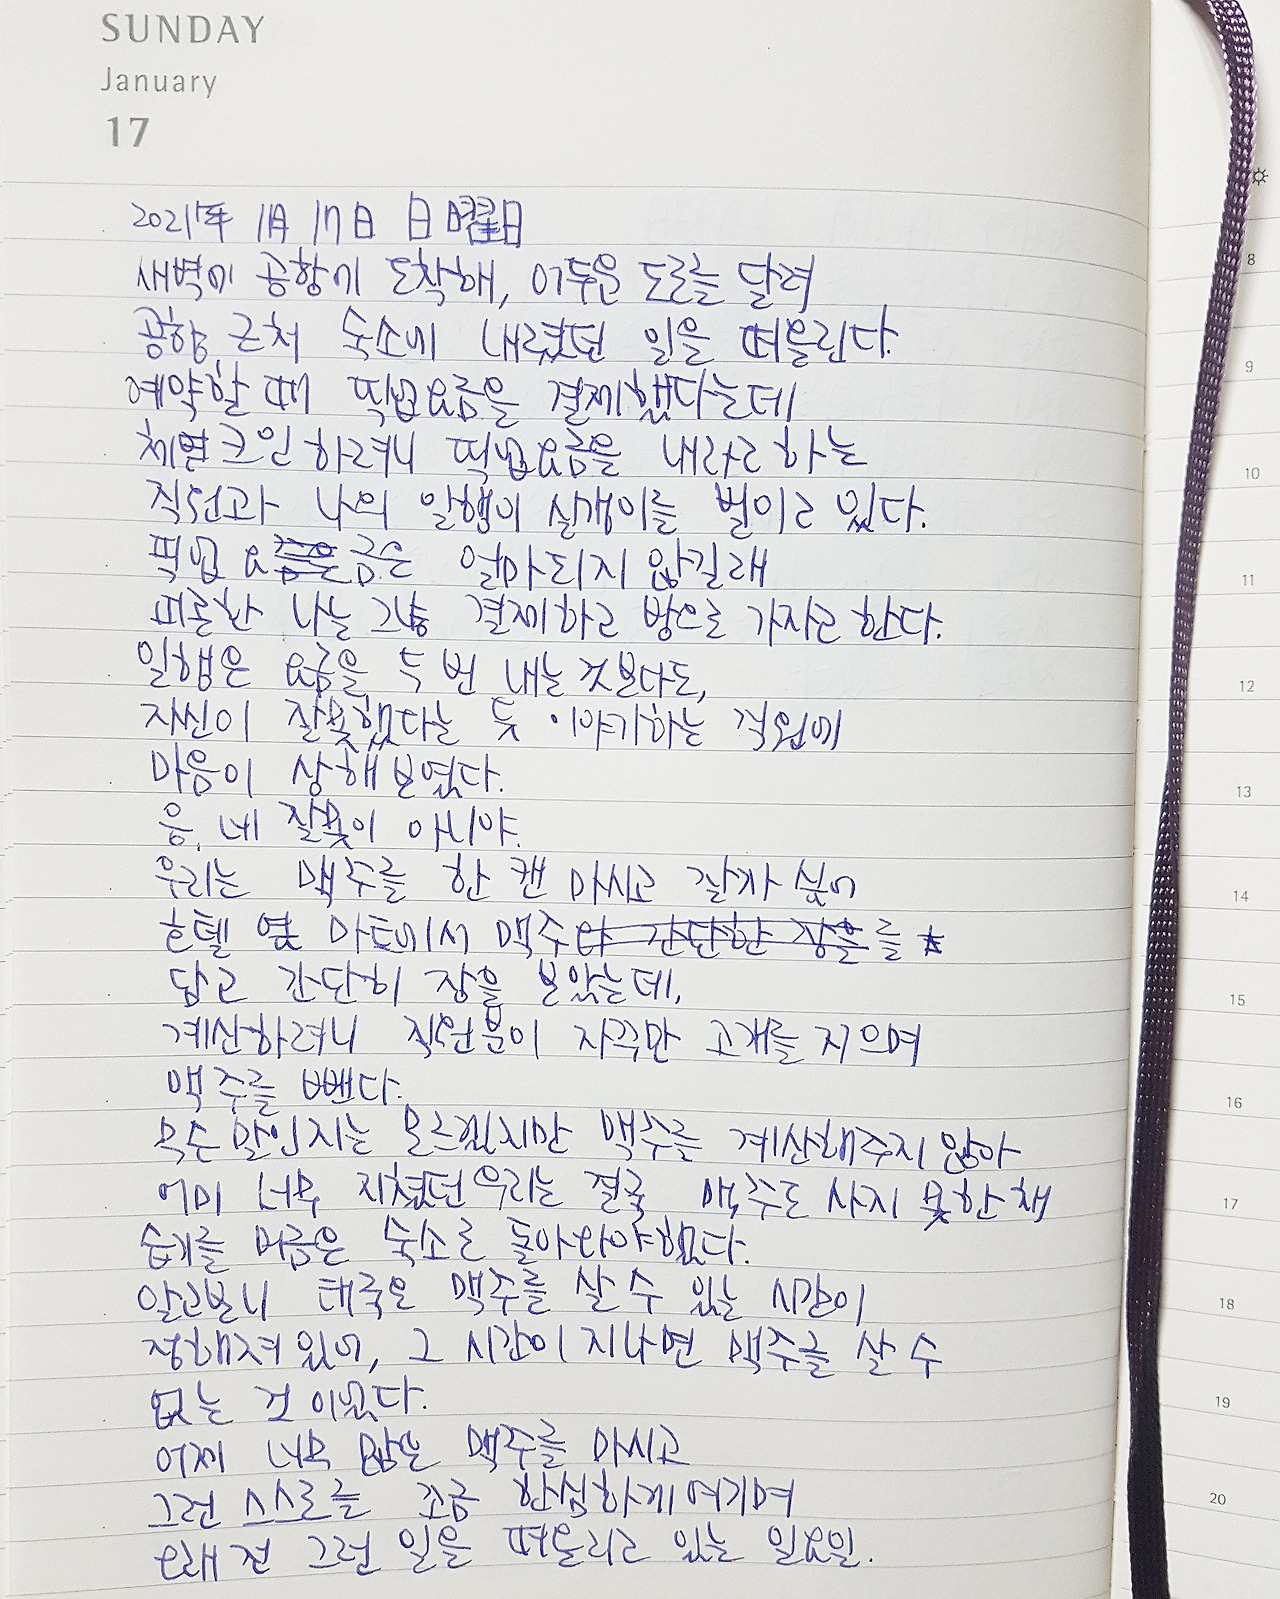 SUNDAY
January
17
2021年 1月 17日 日曜日
새벽에 공항에 도착해, 어두운 도로를 달려
공항 근처 숙소에 내렸던 일을 떠올린다.
예약할 때 픽업요금을 결제했다는데
체크인 하려니 픽업요금을 내라고 하는
직원과 나의 일행이 실갱이를 벌이고 있다.
픽업 요금은 얼마되지 않길래
피곤한 나는 그냥 결제하고 방으로 가자고 한다.
일행은 요금을 두 번 내는 것보다도,
자신이 잘못했다는 듯 이야기하는 직원에
마음이 상해 보였다.
응, 네 잘못이 아니야.
우리는 맥주를 한 캔 마시고 잘까 싶어
호텔 옆 마트에서 맥주야 간단한 장을 를
담고 간단히 장을 보았는데,
계산하려니 직원분이 자꾸만 고개를 저으며
맥주를 뺀다.
무슨 말인지는 모르겠지만 맥주를 계산해주지 않아
이미 너무 지쳤던 우리는 결국 맥주도 사지 못한 채
습기를 머금은 숙소로 돌아와야했다.
알고보니 태국은 맥주를 살 수 있는 시간이
정해져 있어, 그 시간이 지나면 맥주를 살 수
없는 것이었다.
어제 너무 많은 맥주를 마시고
그런 스스로를 조금 한심하게 여기며
오래 전 그런 일을 떠올리고 있는 일요일.
8
9
10
11
12
13
14
15
16
17
18
19
20